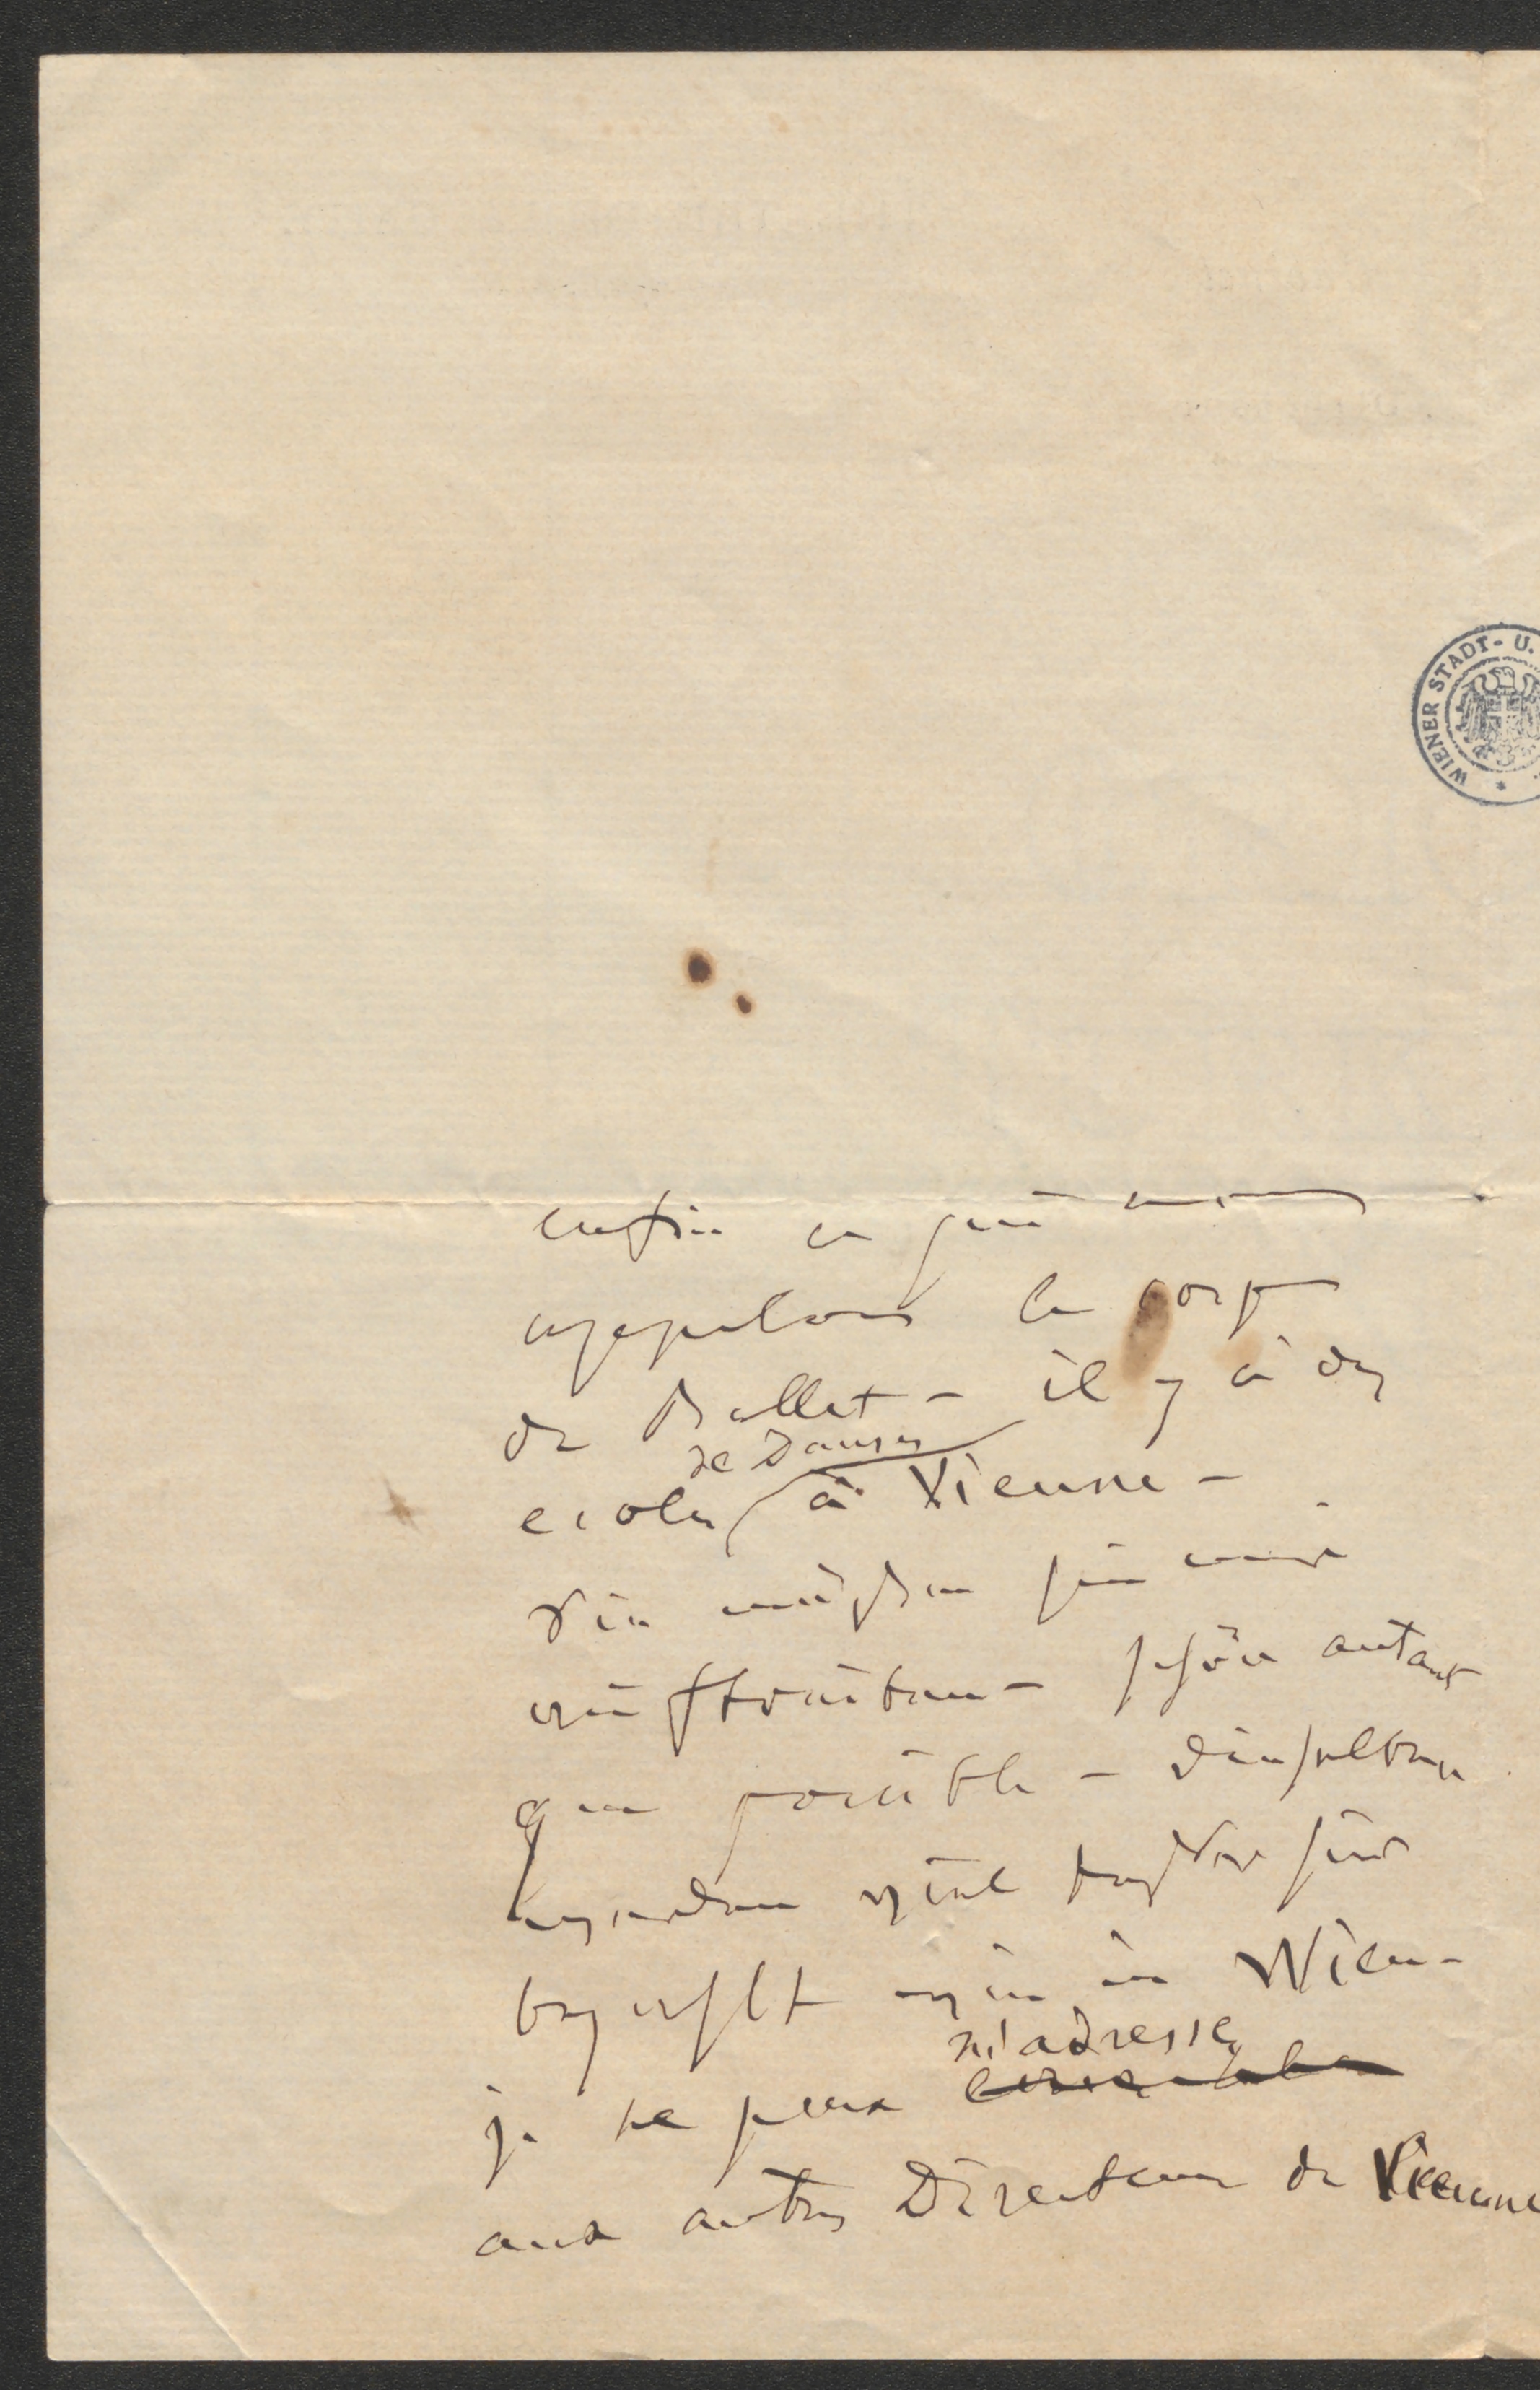 WIENER STADT- U.
enfin ce que nous
appelons le corps
de Ballet – il y a des
ecoles de Danses à Vienne –
Sie müssen für mich
auftreiben – schön autant
que possible – dieselben
werden viel besser für
bezahlt in Wien –
je ne peux m'adresser
aux autres Directeurs de Vienne